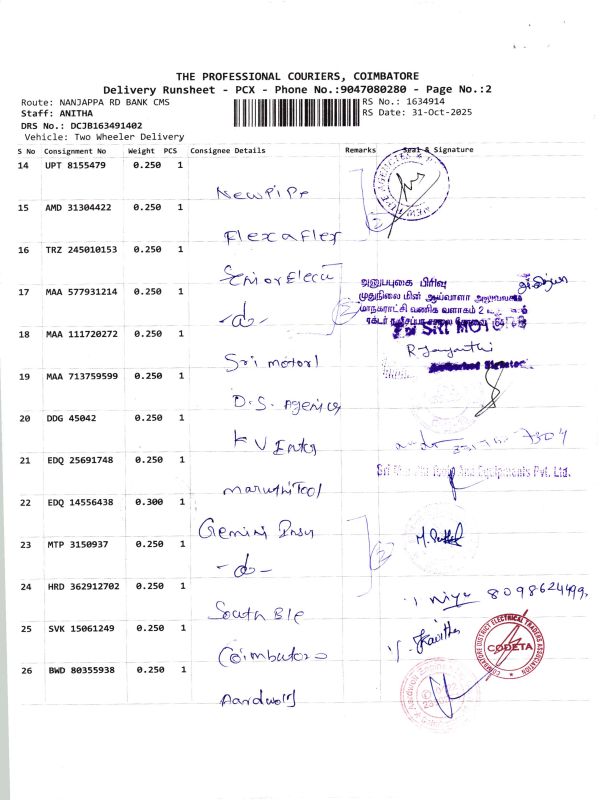 THE PROFESSIONAL COURIERS, COIMBATORE
Delivery Runsheet - PCX - Phone No.:9047080280 - Page No.:2
Route: NANJAPPA RD BANK CMS
RS No.: 1634914
Staff: ANITHA
RS Date: 31-Oct-2025
DRS No.: DCJB163491402
Vehicle: Two Wheeler Delivery
S No Consignment No Weight PCS Consignee Details Remarks Seal & Signature
14 UPT 8155479 0.250 1
New Pipe
15 AMD 31304422 0.250 1
Flexaflex
16 TRZ 245010153 0.250 1
Senior Elect
அனுப்புகை பிரிவு
17 MAA 577931214 0.250 1
முதுநிலை மின் ஆய்வாளர்
-do-
மாநகராட்சி வணிக வளாகம்
18 MAA 111720272 0.250 1
For SRI MOTORS
Sri motors
R Jayanthi
Authorised Signatory
19 MAA 713759599 0.250 1
D.S. Agencies
20 DDG 45042 0.250 1
KV Enter
21 EDQ 25691748 0.250 1
Tools And Equipments Pvt. Ltd.
maruthi Tool
22 EDQ 14556438 0.300 1
Gemini Insu
23 MTP 3150937 0.250 1
-do-
24 HRD 362912702 0.250 1
8098624499
South Ble
25 SVK 15061249 0.250 1
Kavitha
COIMBATORE DISTRICT ELECTRICAL TRADERS ASSOCIATION
CODETA
Coimbatore
26 BWD 80355938 0.250 1
Aardwolf